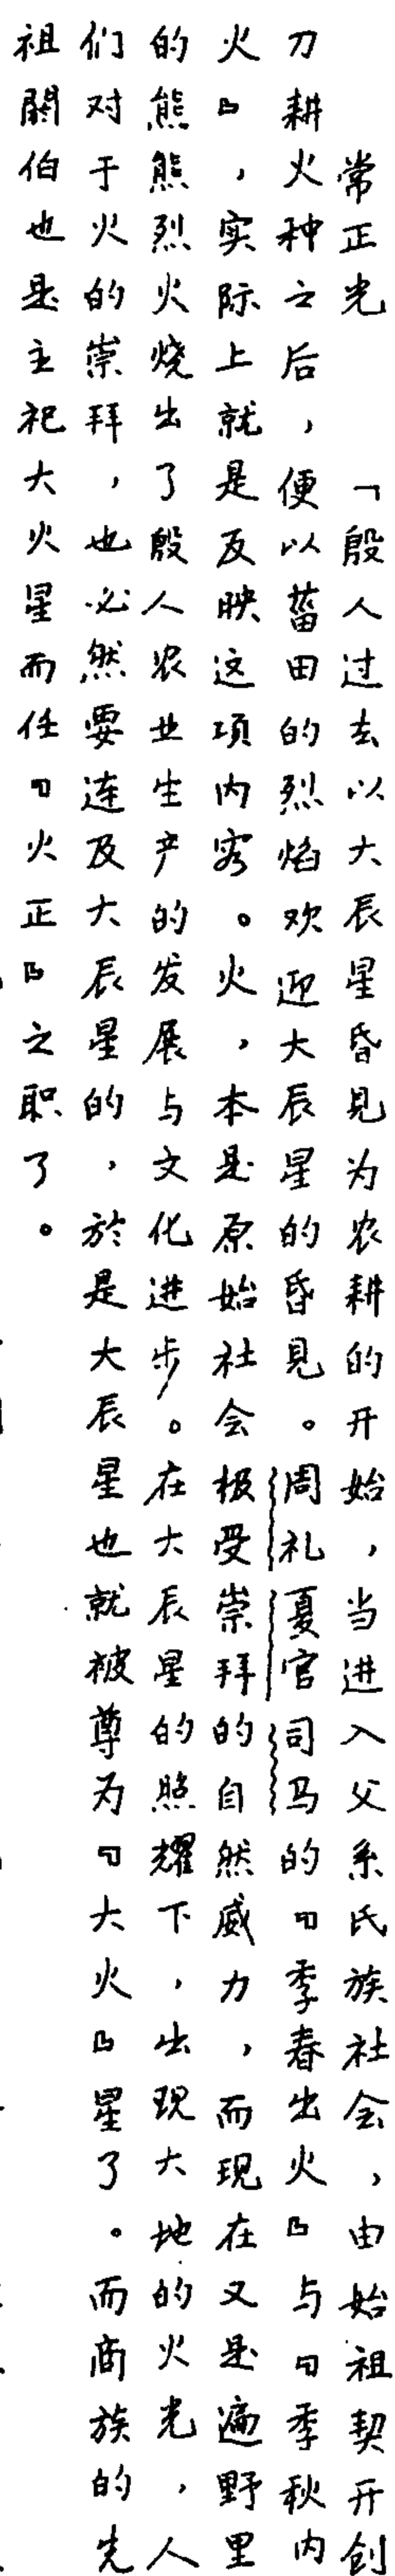 常正光　「殷人过去以大辰星昏見为农耕的开始，当进入父系氏族社会，由始祖契开创
刀耕火种之后，便以菑田的烈焰欢迎大辰星的昏見。周礼夏官司马的『季春出火』与『季秋内
火』，实际上就是反映这项内容。火，本是原始社会极受崇拜的自然威力，而现在又是遍野里
的熊熊烈火烧出了殷人农业生产的发展与文化进步。在大辰星的照耀下，出现大地的火光，人
们对于火的崇拜，也必然要连及大辰星的，於是大辰星也就被尊为『大火』星了。而商族的先
祖阏伯也是主祀大火星而任『火正』之职了。